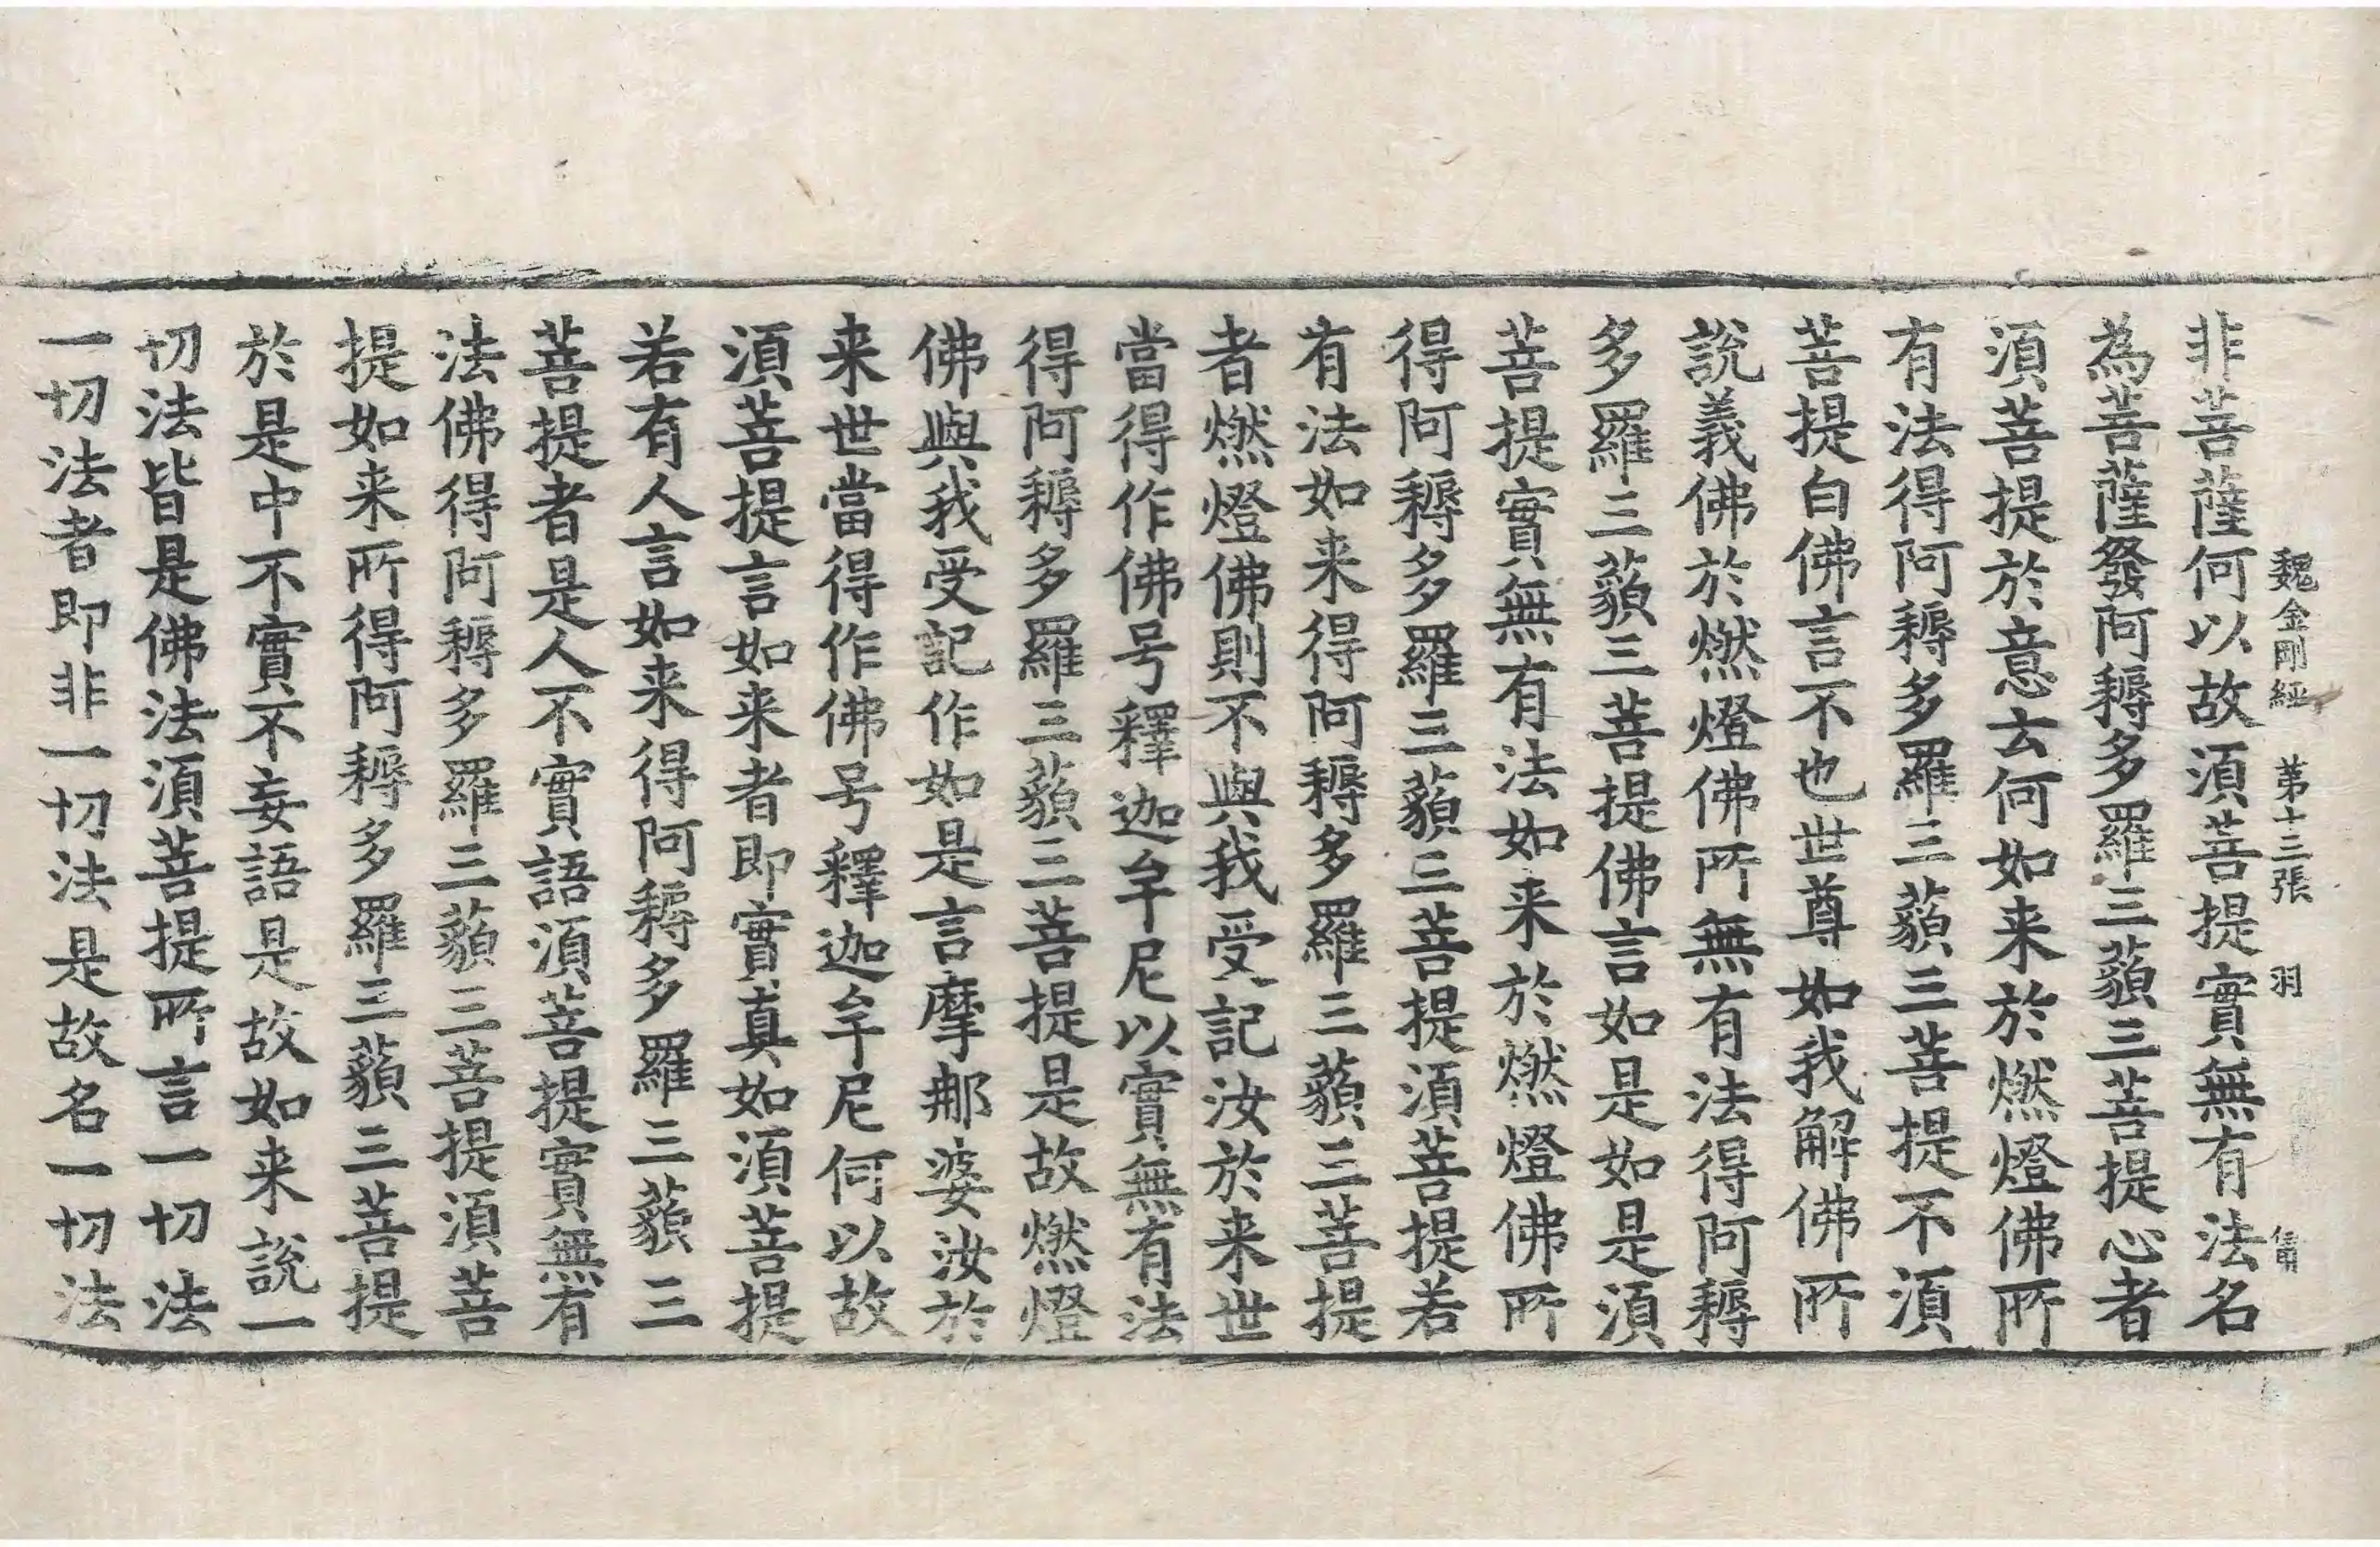 魏金剛經 第十三張 羽
非菩薩何以故須菩提實無有法名
為菩薩發阿耨多羅三藐三菩提心者
須菩提於意云何如来於燃燈佛所
有法得阿耨多羅三藐三菩提不須
菩提白佛言不也世尊如我解佛所
說義佛於燃燈佛所無有法得阿耨
多羅三藐三菩提佛言如是如是須
菩提實無有法如来於燃燈佛所
得阿耨多羅三藐三菩提須菩提若
有法如来得阿耨多羅三藐三菩提
者燃燈佛則不與我受記汝於来世
當得作佛号釋迦牟尼以實無有法
得阿耨多羅三藐三菩提是故燃燈
佛與我受記作如是言摩那婆汝於
来世當得作佛号釋迦牟尼何以故
須菩提言如来者即實真如須菩提
若有人言如来得阿耨多羅三藐三
菩提者是人不實語須菩提實無有
法佛得阿耨多羅三藐三菩提須菩
提如来所得阿耨多羅三藐三菩提
於是中不實不妄語是故如来說一
切法皆是佛法須菩提所言一切法
一切法者即非一切法是故名一切法